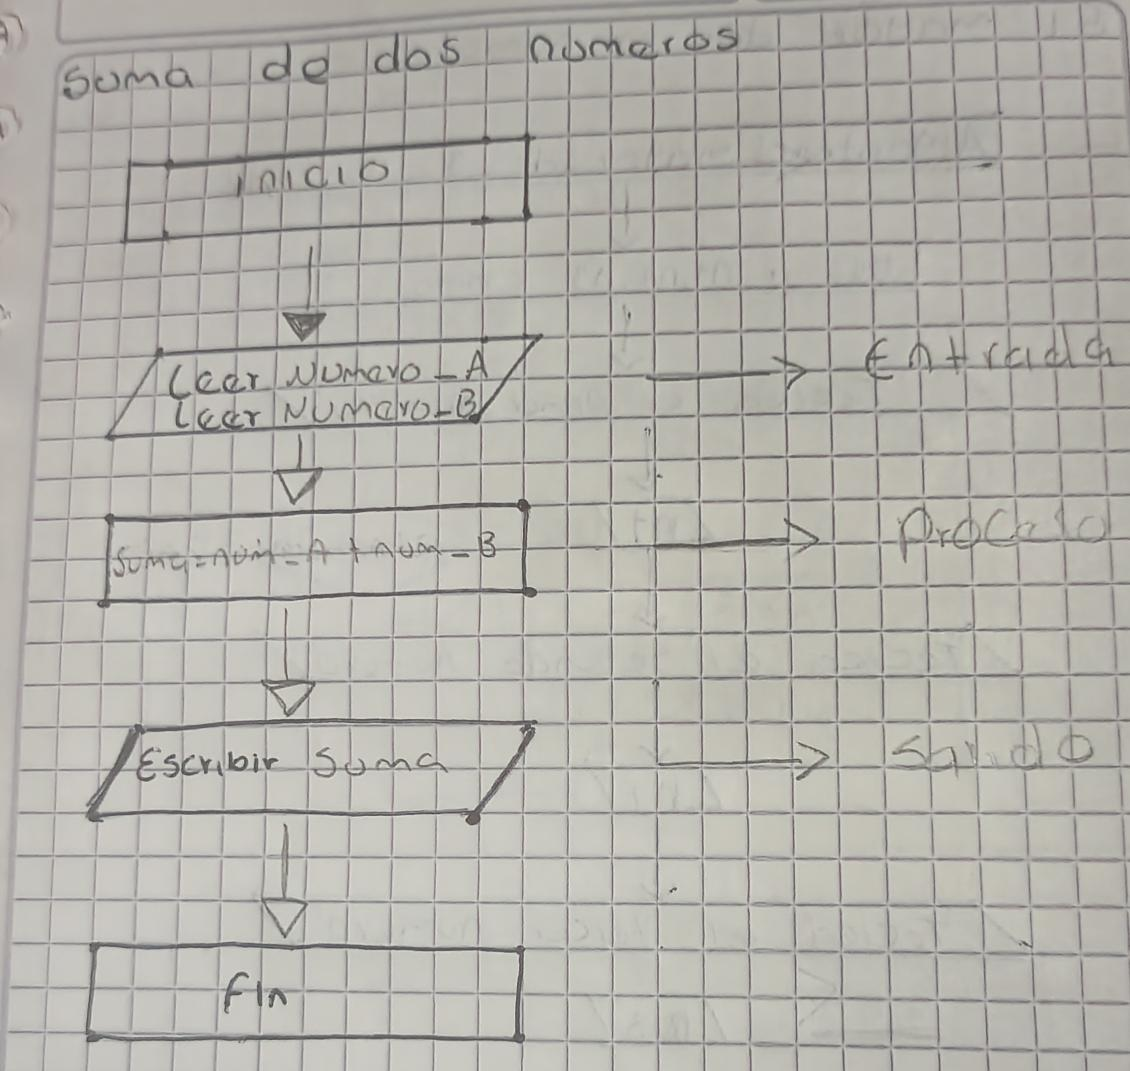 Suma de dos números
inicio
Leer Numero_A
Leer Numero_B
Entrada
Suma=num_A + num_B
Proceso
Escribir Suma
Salida
Fin